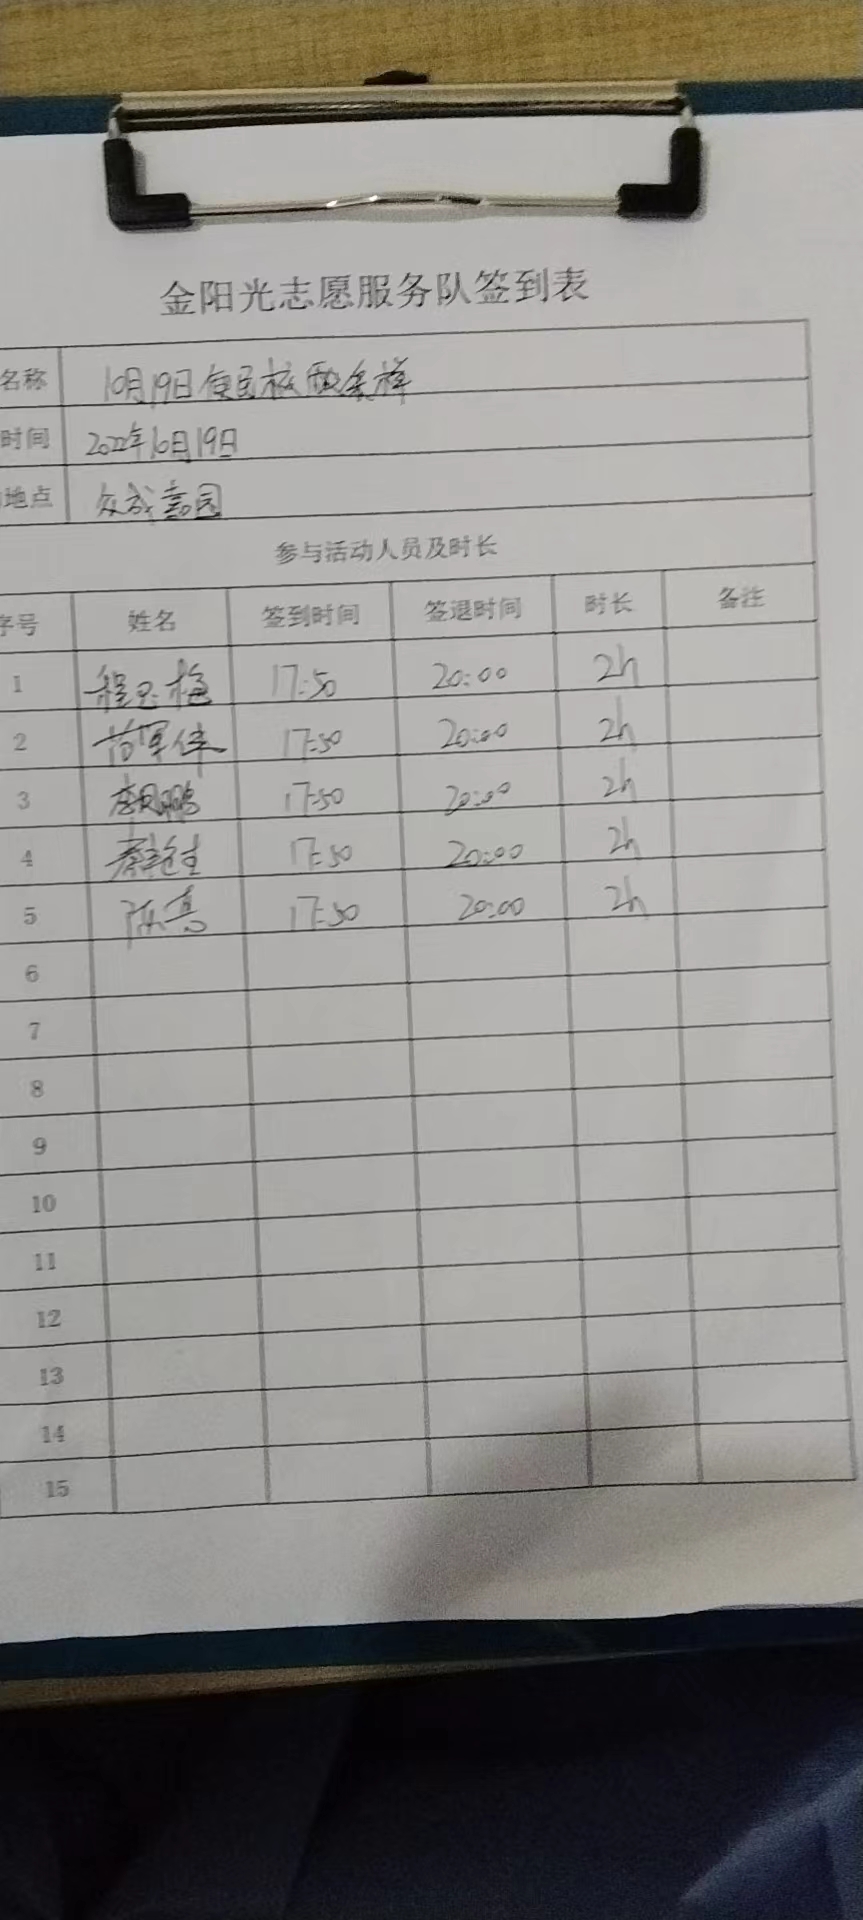 金阳光志愿服务队签到表
名称 10月19日便民核酸采样
时间 2022年10月19日
地点 众成嘉园
参与活动人员及时长
序号 姓名 签到时间 签退时间 时长 备注
1 程 梅 17:50 20:00 2h
2 17:50 20:00 2h
3 李凤鹏 17:50 20:00 2h
4 17:50 20:00 2h
5 陈喜 17:50 20:00 2h
6
7
8
9
10
11
12
13
14
15